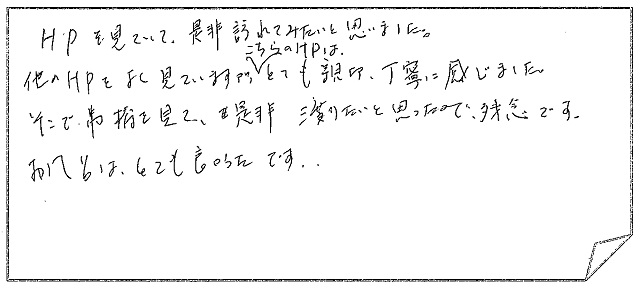 HPを見ていて、是非訪れてみたいと思いました。
こちらのHPは、
他のHPもよく見ていますが、とても親切、丁寧に感じました。
そこで 見て、是非 渡りたいと思ったので、残念です。
は、とても良かったです。.